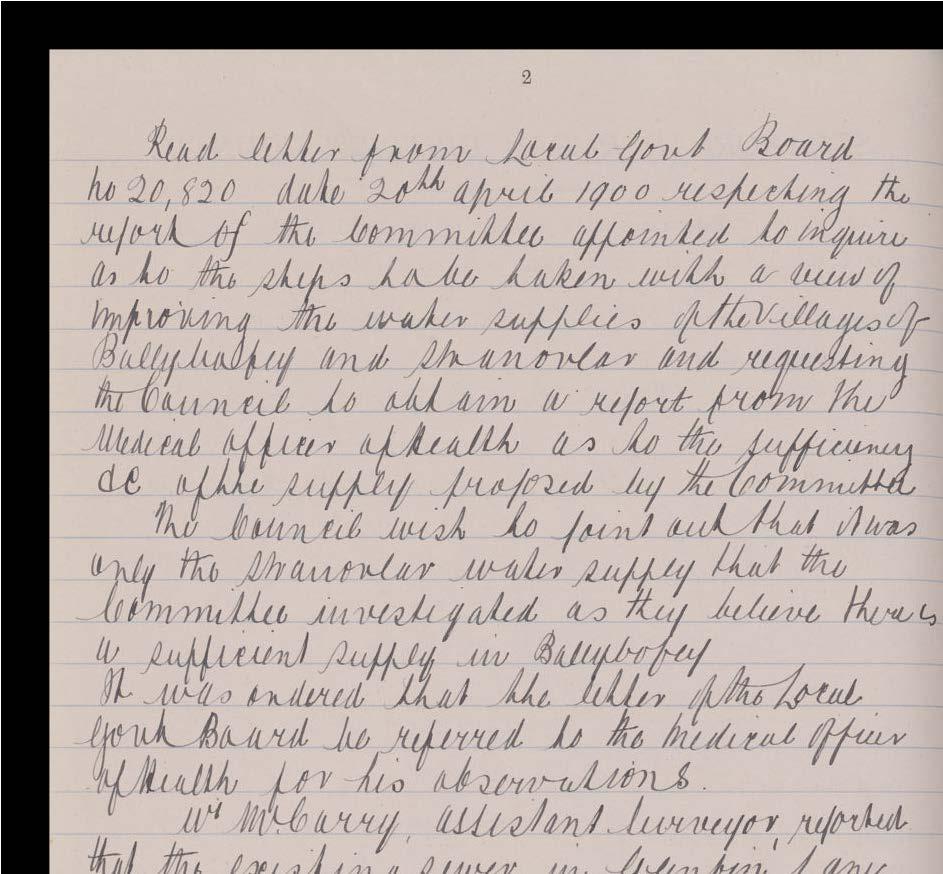 2
Read letter from Local Govt Board
No 20,820 date 20th April 1900 respecting the
report of the Committee appointed to inquire
as to the steps to be taken with a view of
improving the water supplies of the Villages of
Ballybofey and Stranorlar and requesting
the Council to obtain a report from the
Medical officer of Health as to the sufficiency
&c of the supply proposed by the Committee
The Council wish to point out that it was
only the Stranorlar water supply that the
Committee investigated as they believe there is
a sufficient supply in Ballybofey
It was ordered that the letter of the Local
Govt Board be referred to the Medical Officer
of Health for his observations.
Mr McCarry, assistant Surveyor, reported
that the existing sewer in Lane